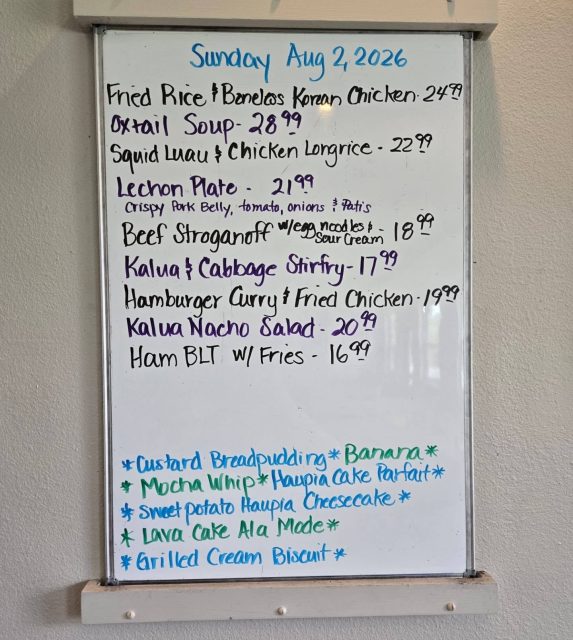 Sunday Aug 2, 2026
Fried Rice & Boneless Korean Chicken - 24.99
Oxtail Soup - 28.99
Squid Luau & Chicken Longrice - 22.99
Lechon Plate - 21.99
Crispy Pork Belly, tomato, onions & Patis
Beef Stroganoff w/egg noodles & Sour Cream - 18.99
Kalua & Cabbage Stirfry - 17.99
Hamburger Curry & Fried Chicken - 19.99
Kalua Nacho Salad - 20.99
Ham BLT w/ Fries - 16.99
*Custard Breadpudding* Banana*
* Mocha Whip* Haupia Cake Parfait*
* Sweet potato Haupia Cheesecake *
* Lava Cake Ala Mode *
*Grilled Cream Biscuit *